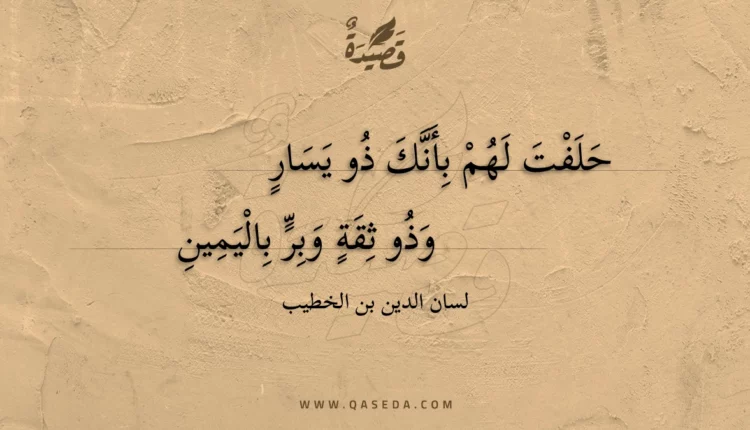 قَصِيدَةٌ
حَلَفْتَ لَهُمْ بِأَنَّكَ ذُو يَسَارٍ
وَذُو ثِقَةٍ وَبِرٍّ بِالْيَمِينِ
لسان الدين بن الخطيب
WWW.QASEDA.COM